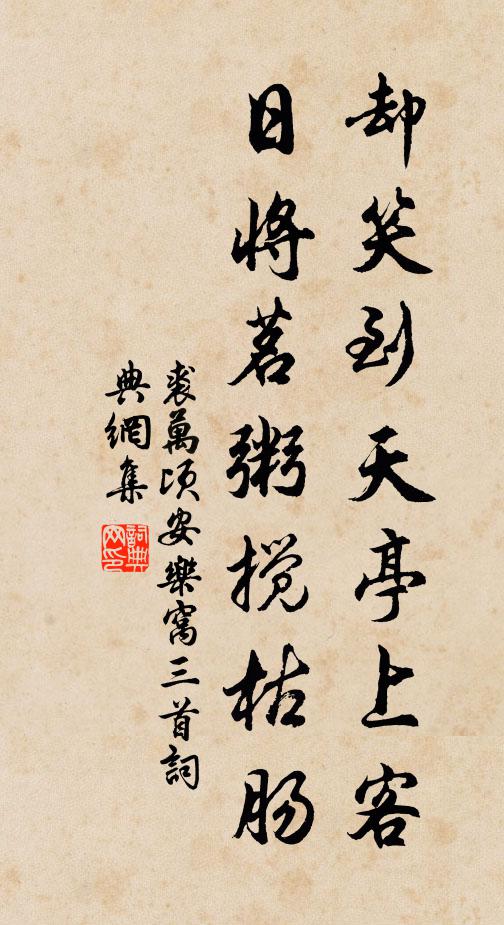 却笑到天亭上客
日将茗粥搅枯肠
裘萬頃安樂窩三首詞
典網集
詞典網印